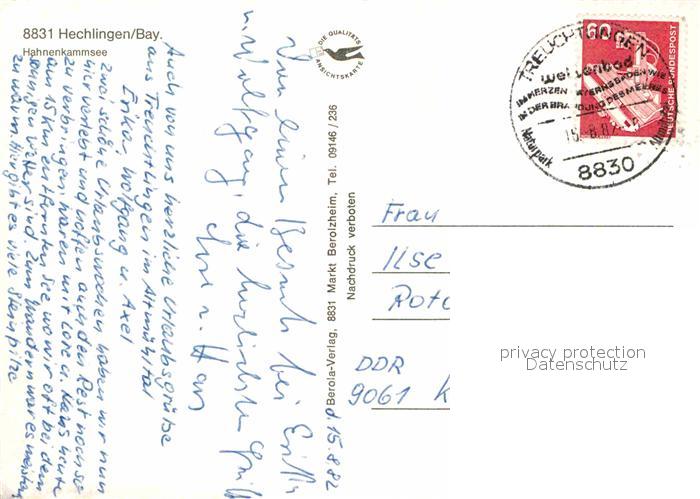 8831 Hechlingen/Bay.
Hahnenkammsee
DIE QUALITÄTS
ANSICHTSKARTE
Von einem Besuch bei Erika
u. Wolfgang, die herzlichsten Grüße
Lore u. Hans
Auch von uns herzliche Urlaubsgrüße
aus Treuchtlingen im Altmühltal
Erika, Wolfgang u. Axel
Zwei schöne Urlaubswochen haben wir nun
hier verlebt und hoffen auch den Rest noch so
zu verbringen. Waren mit Lore u. Hans heute
am 15 km entfernten See, wo wir oft bei dem
sonnigen Wetter sind. Zum Wandern war es meistens
zu warm. Hier gibt es viele Steinpilze
d. 15.8.82
Berola-Verlag, 8831 Markt Berolzheim, Tel. 09146/236
Nachdruck verboten
60
DEUTSCHE BUNDESPOST
TREUCHTLINGEN
wellenbad
IM HERZEN BAYERNS BADEN WIE
IN DER BRANDUNG DES MEERES
15.-8.82
Naturpark Altmühltal
8830
Frau
Ilse
DDR
9061 K
privacy protection
Datenschutz